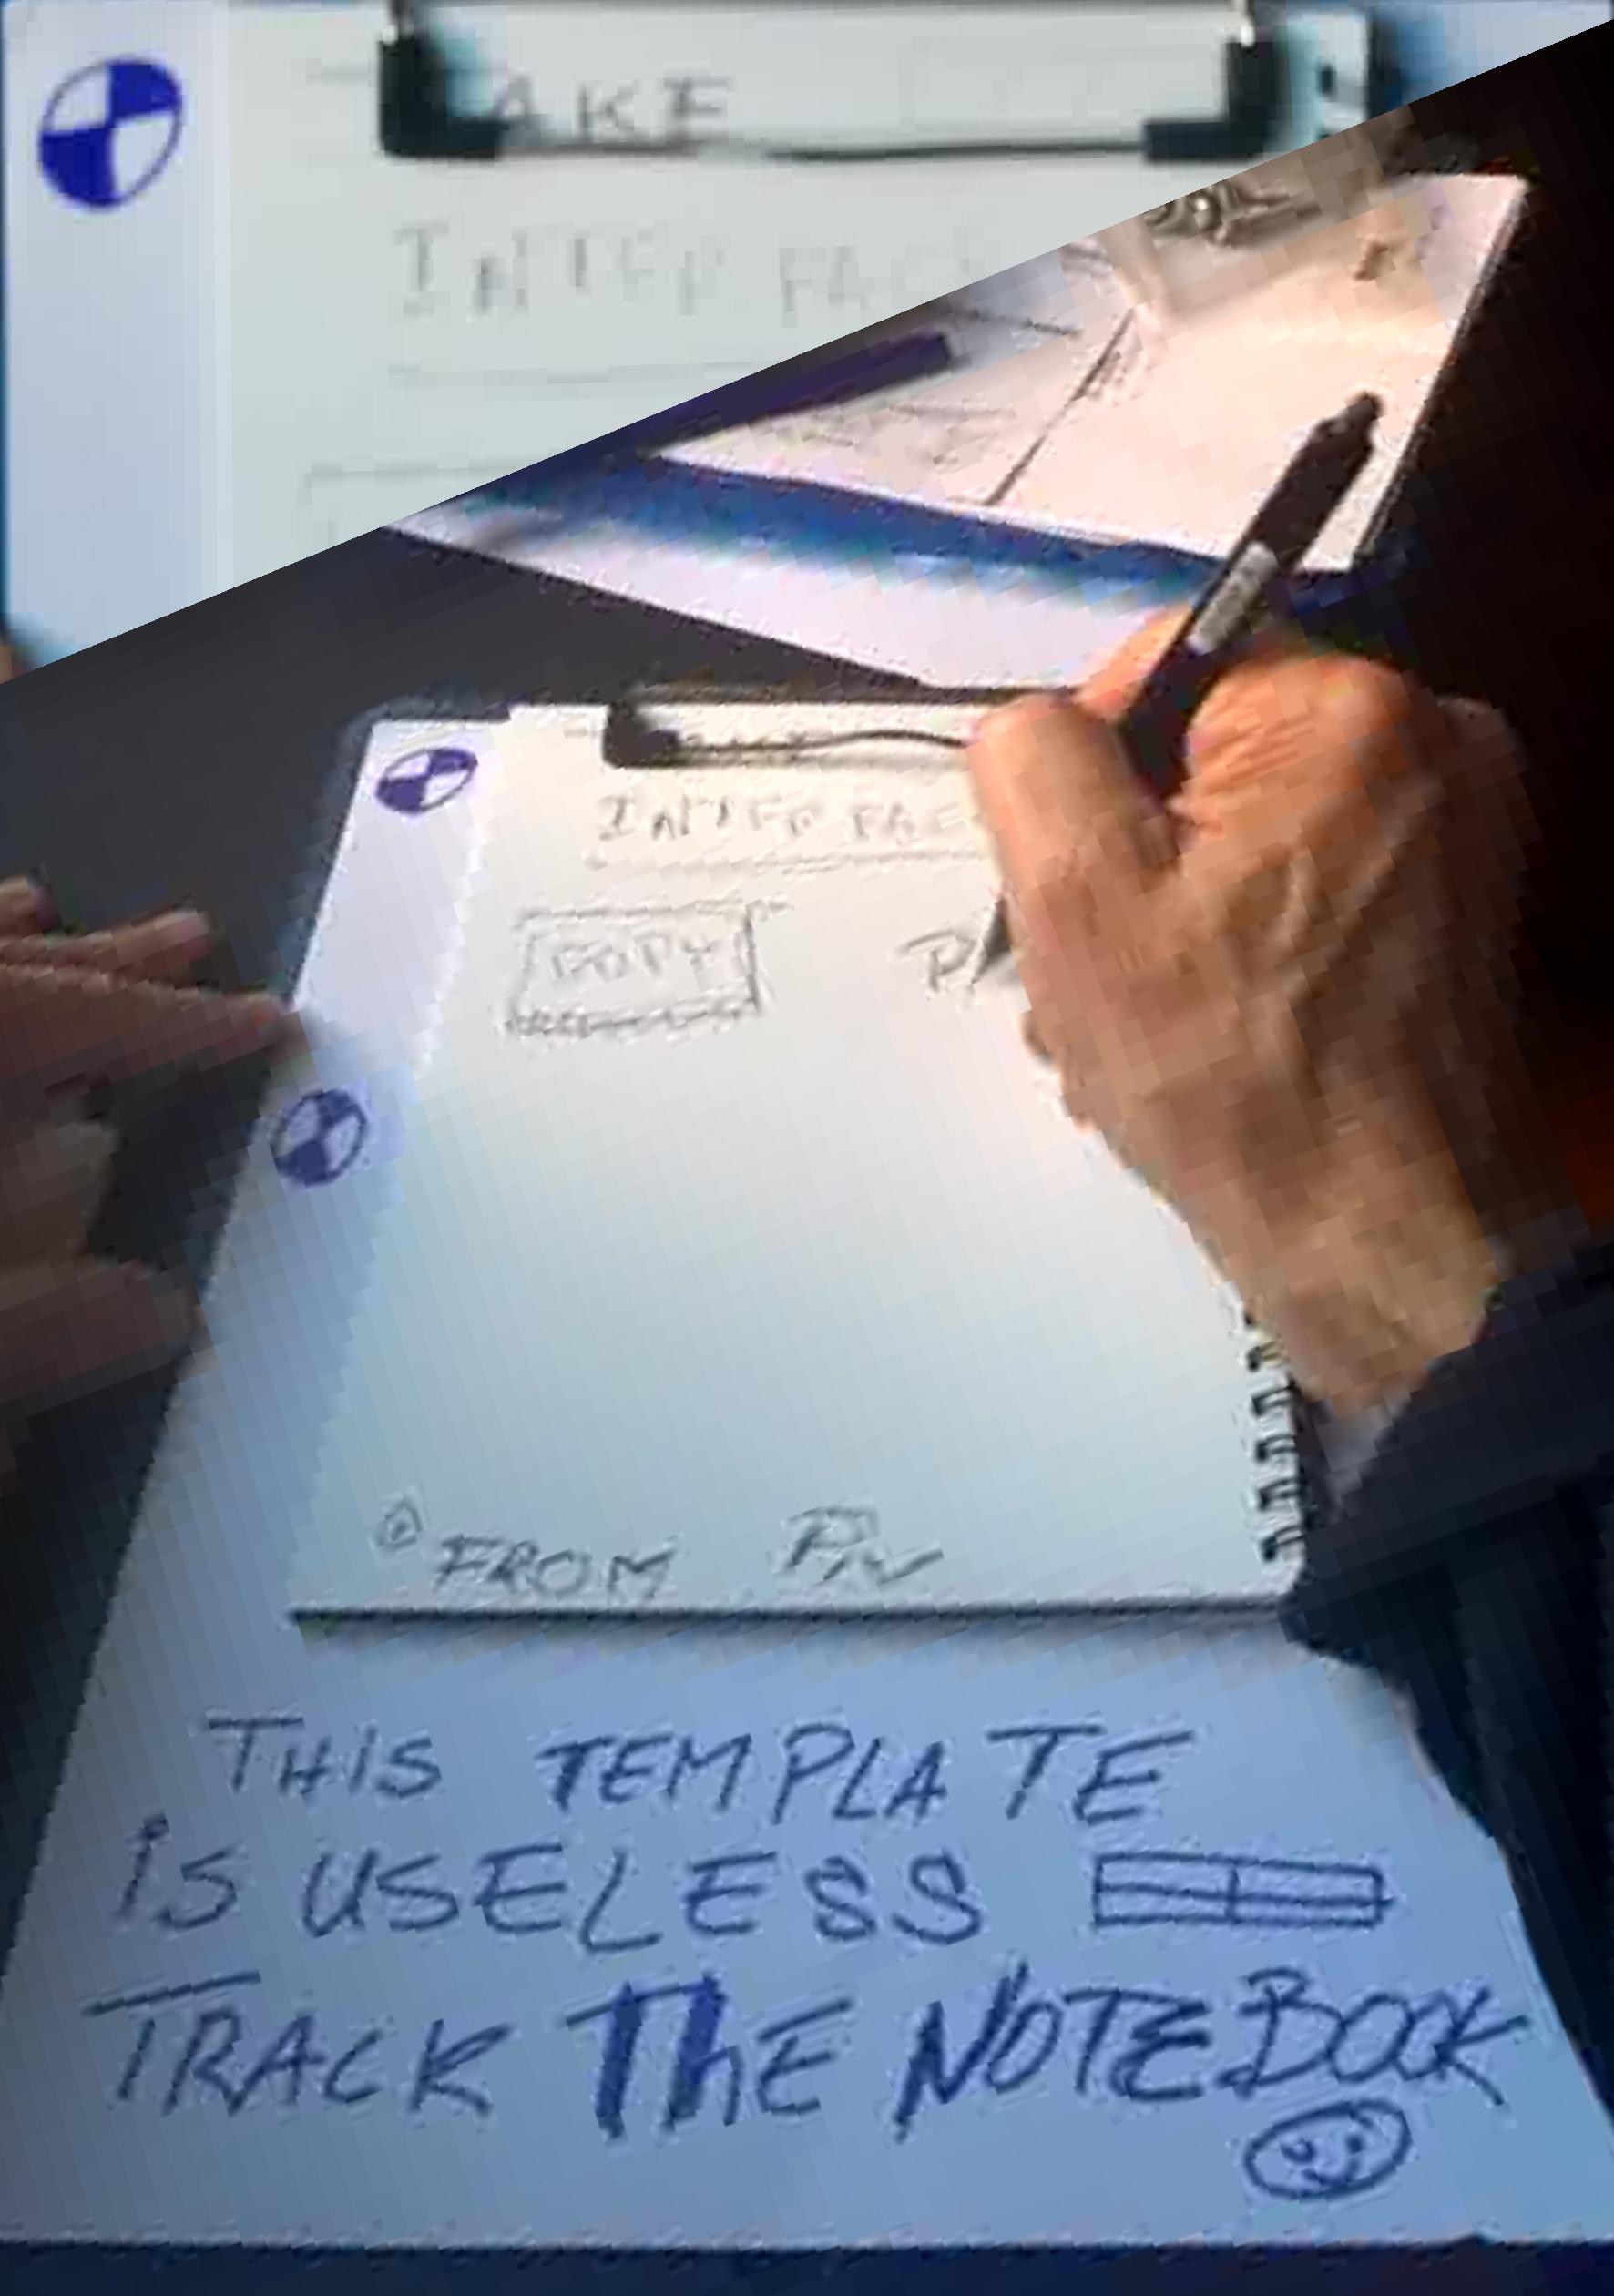 AKE
INTER FAC
INTER FAC
COPY
P
FROM PN
THIS TEMPLATE
iS USELESS
TRACK ThE NOTEBOOK